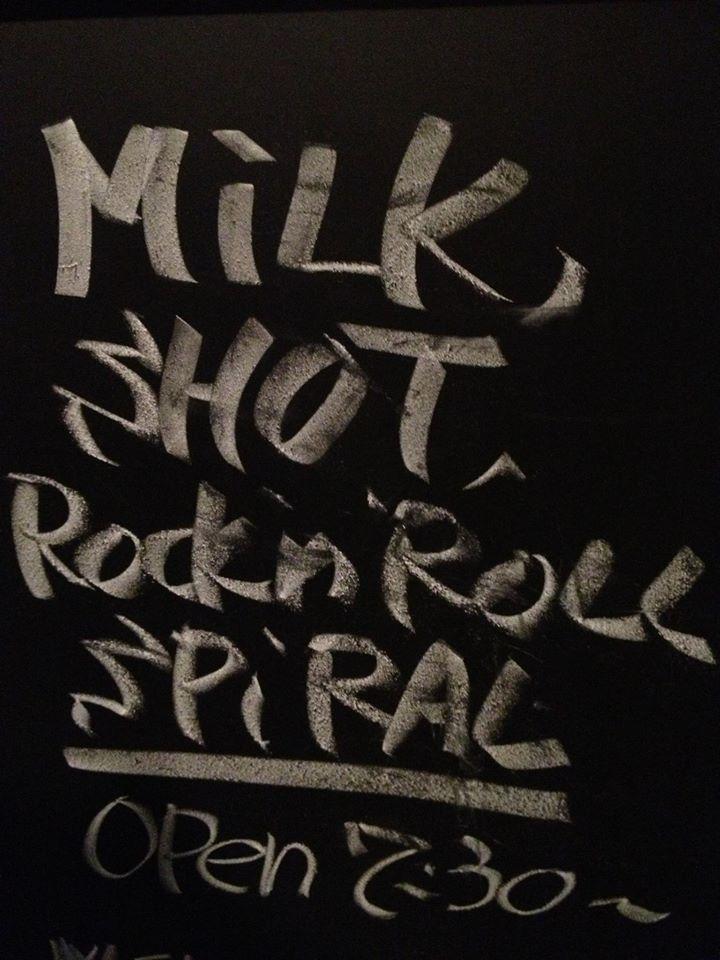 MiLK
SHOT,
Rock'n'Roll
SPiRAL
OPen 7:30~